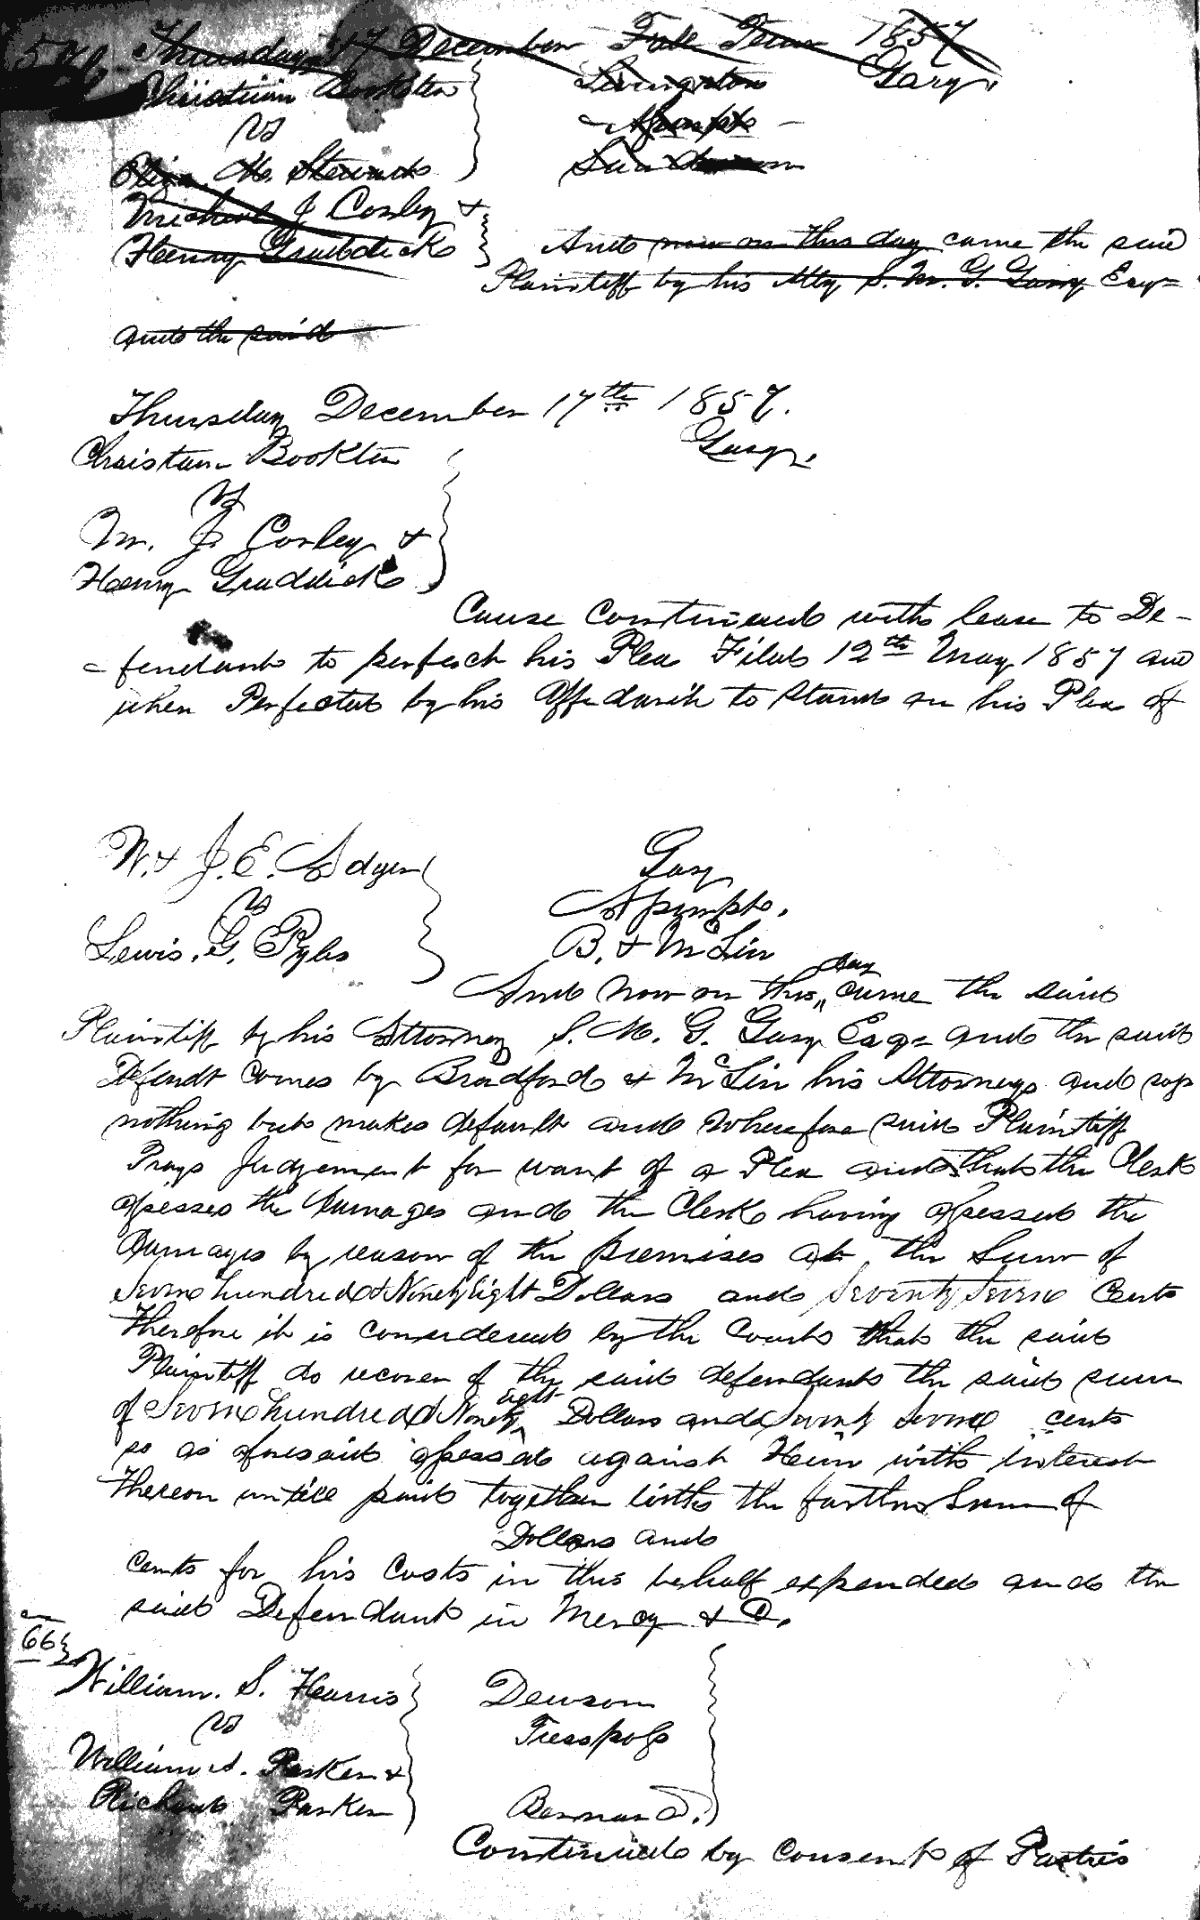 Thursday 17 December Fall Term 1857
Christian Bookter Livingston Gary
vs Assumpts
Eliza. M. Stewarts
Michael J Corley &
Henry Graddick And now on this day came the said
Plaintiff by his Atty S. M. G. Gary Esqr
and the said
Thursday December 17th 1857.
Christian Bookter Gary.
vs
M. J. Corley &
Henry Graddick
Cause Continued with leave to De-
-fendant to perfect his Plea Filed 12th May 1857 and
when Perfected by his Affidavit to Stand as his Plea of
W. & J. E. Adger Gary
vs Assumpt.
Lewis. G. Pyles B. & McLin
And now on this day came the said
Plaintiff by his Attorney S. M. G. Gary Esqr and the said
Defendt comes by Bradford & McLin his Attorneys and says
nothing but makes default and wherefore said Plaintiff
Prays Judgement for want of a Plea and that the Clerk
assesses the Damages and the Clerk having assessed the
Damages by reason of the premises at the Sum of
Seven hundred & Ninety Eight Dollars and Seventy Seven Cents
Therefore it is considered by the Court that the said
Plaintiff do recover of the said defendant the said sum
of Seven hundred & Ninety Eight Dollars and Seventy Seven cents
so as aforesaid assessed against Him with interest
Thereon untill paid together with the further Sum of
Dollars and
cents for his Costs in this behalf expended and the
said Defendant in Mercy & C.
66
William. S. Harris Dawson
vs Tresspass
William A. Parker &
Richard Parker Barnard.
Continued by consent of Parties